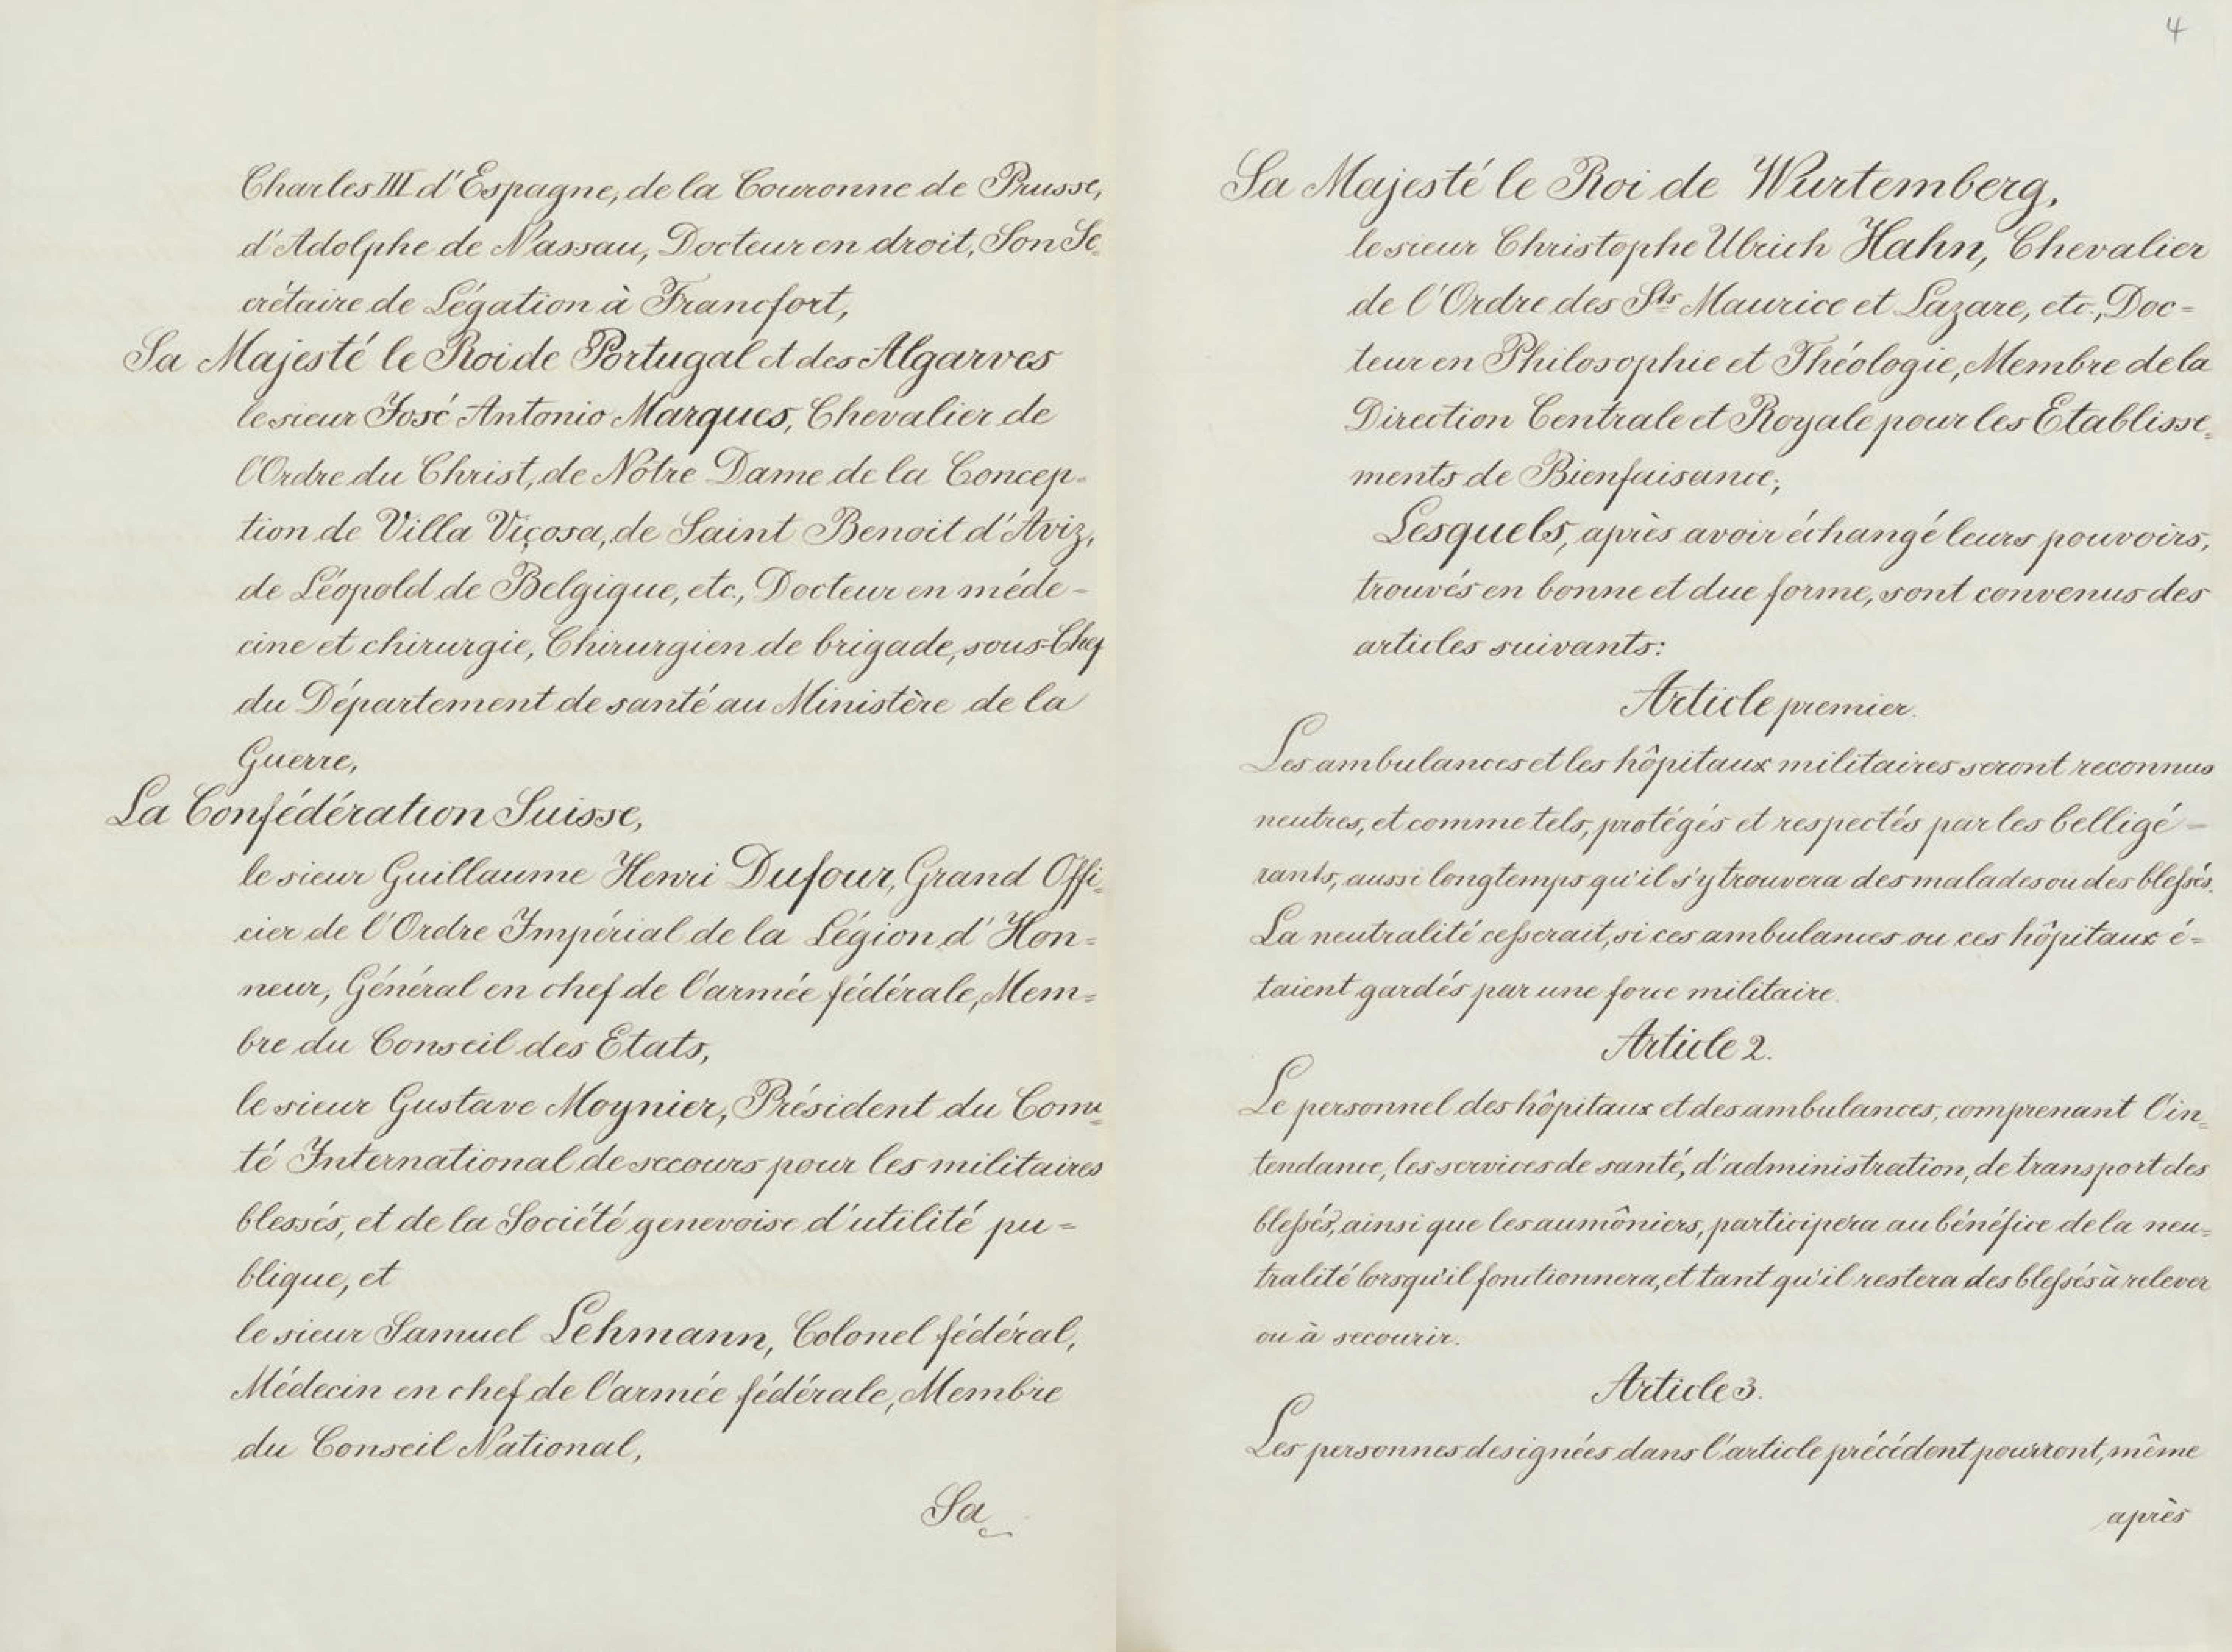 Charles III d'Espagne, de la Couronne de Prusse,
d'Adolphe de Nassau, Docteur en droit, Son Se-
crétaire de Légation à Francfort,
Sa Majesté le Roi de Portugal et des Algarves
le sieur José Antonio Marques, Chevalier de
l'Ordre du Christ, de Notre Dame de la Concep-
tion de Villa Viçosa, de Saint Benoit d'Aviz,
de Léopold de Belgique, etc., Docteur en méde-
cine et chirurgie, Chirurgien de brigade, sous-Chef
du Département de santé au Ministère de la
Guerre,
La Confédération Suisse,
le sieur Guillaume Henri Dufour, Grand Offi-
cier de l'Ordre Impérial de la Légion d'Hon=
neur, Général en chef de l'armée fédérale, Mem=
bre du Conseil des Etats,
le sieur Gustave Moynier, Président du Comi=
té International de secours pour les militaires
blessés, et de la Société genevoise d'utilité pu=
blique, et
le sieur Samuel Lehmann, Colonel fédéral,
Médecin en chef de l'armée fédérale, Membre
du Conseil National,
Sa
4
Sa Majesté le Roi de Wurtemberg,
le sieur Christophe Ulrich Hahn, Chevalier
de l'Ordre des Sts Maurice et Lazare, etc., Doc=
teur en Philosophie et Théologie, Membre de la
Direction Centrale et Royale pour les Etablisse=
ments de Bienfaisance;
Lesquels, après avoir échangé leurs pouvoirs,
trouvés en bonne et due forme, sont convenus des
articles suivants:
Article premier.
Les ambulances et les hôpitaux militaires seront reconnus
neutres, et comme tels, protégés et respectés par les belligé-
rants, aussi longtemps qu'il s'y trouvera des malades ou des blessés.
La neutralité cesserait, si ces ambulances ou ces hôpitaux é=
taient gardés par une force militaire.
Article 2.
Le personnel des hôpitaux et des ambulances, comprenant l'in=
tendance, les services de santé, d'administration, de transport des
blessés, ainsi que les aumôniers, participera au bénéfice de la neu=
tralité lorsqu'il fonctionnera, et tant qu'il restera des blessés à relever
ou à secourir.
Article 3.
Les personnes designées dans l'article précédent pourront, même
après